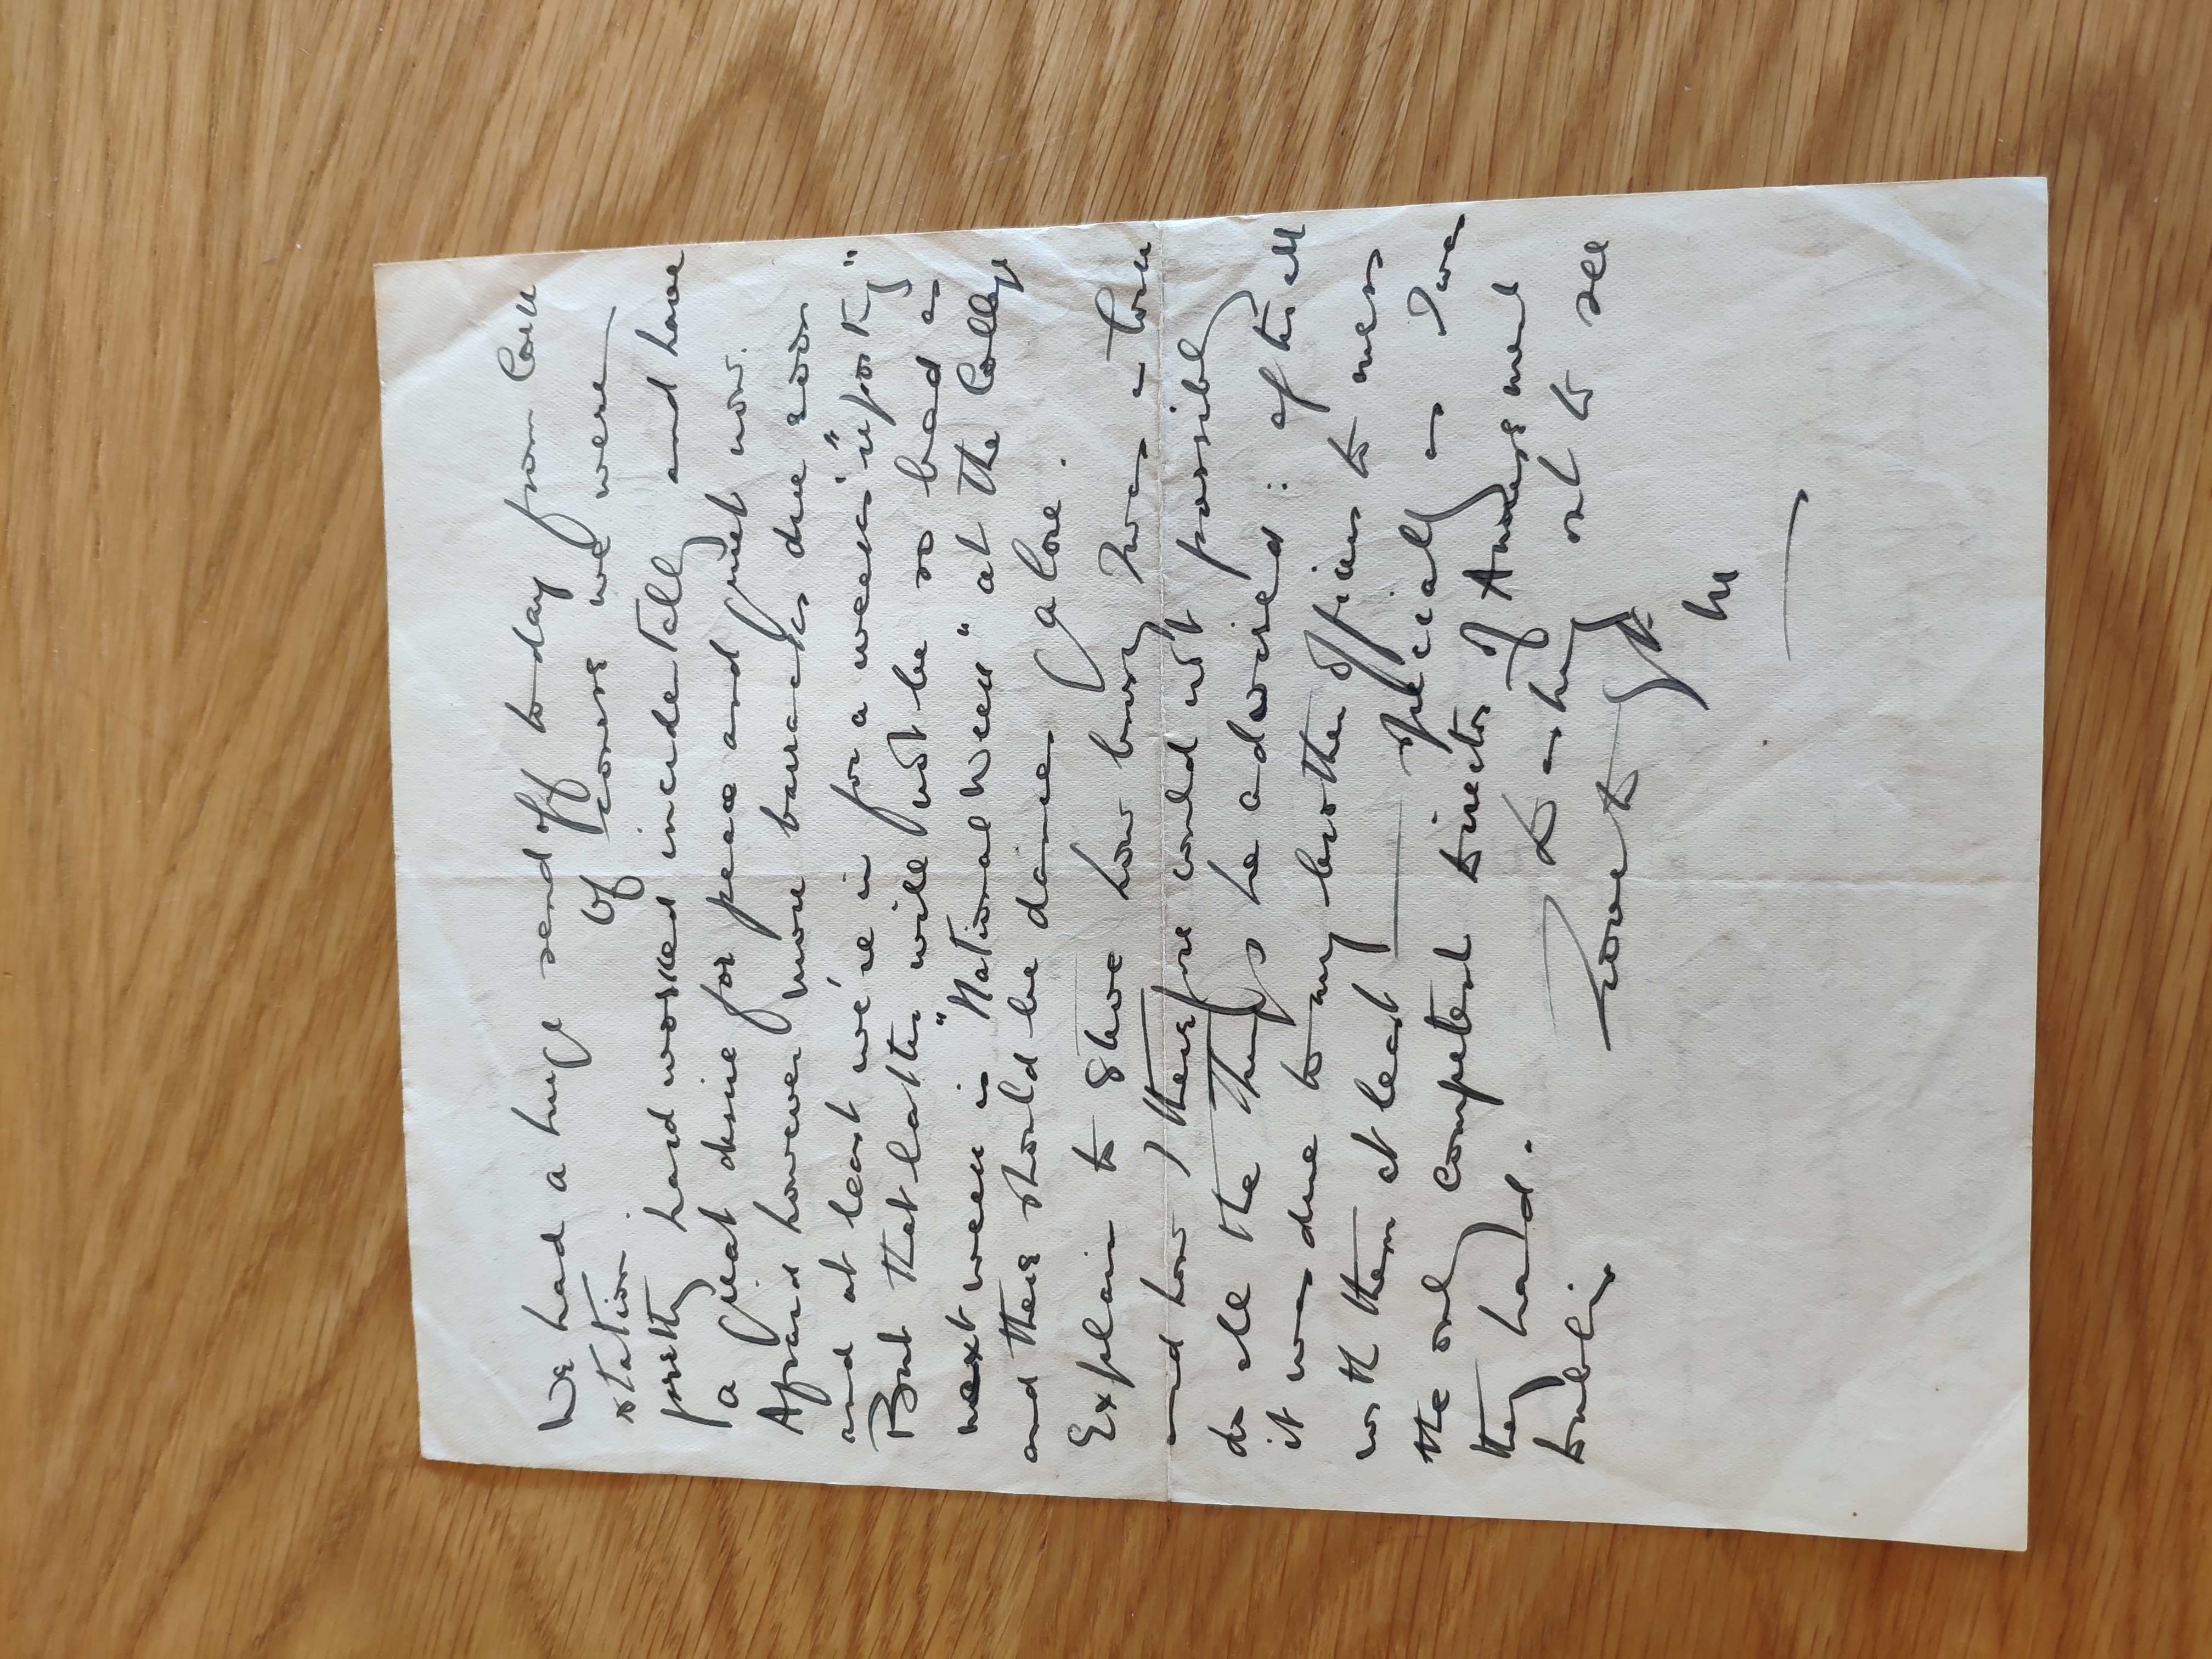 We had a huge send off today from Cork
station. Of course we were
pretty hard worked incidentally and have
a great desire for peace and quiet now.
Afraid however more barracks due soon
and at least we're in for a week's "sporting"
But that latter will not be so bad as
next week is "National Week" at the College
and there should be dances galore.
Explain to how busy I was in Cork
and how I therefore could not possibly
do all the things he advised: after all
it was due to my brother officers to mess
with them at least — specially as I was
the only competent Director of Amusement
they had. to as hurry out to see
Dublin
Love to
M